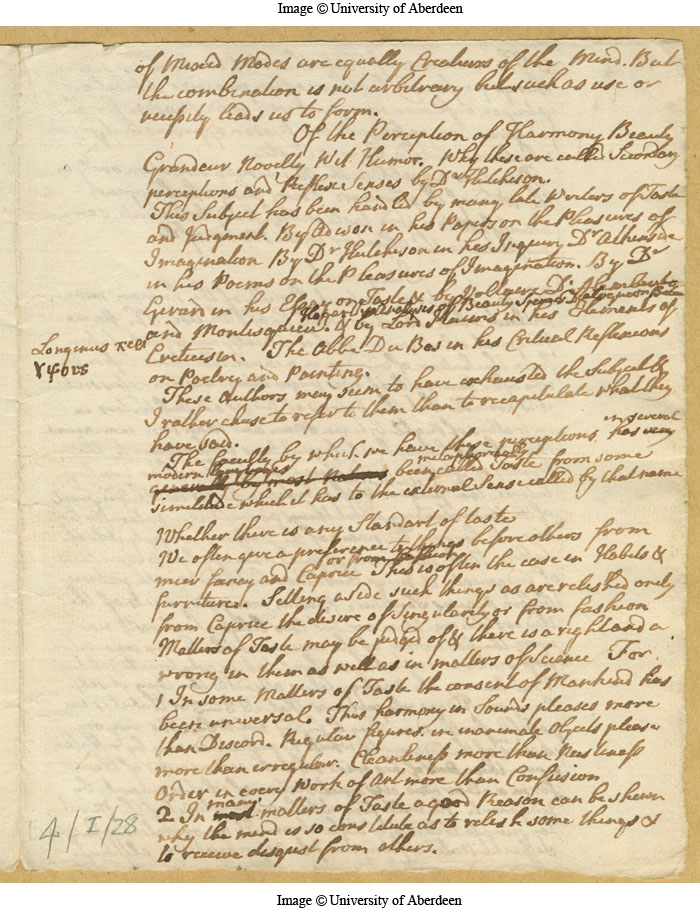 Image © University of Aberdeen
of Mixed Modes are equally Creatures of the Mind. But
the combination is not arbitrary but such as use or
necessity leads us to form.
Of the Perception of Harmony Beauty
Grandeur Novelty Wit Humor. Why these are called Secondary
perceptions and Reflex Senses by Dr Hutcheson.
This Subject has been handled by many late Writers of Taste
and Judgment. By Adison in his Papers on the Pleasures of
Imagination By Dr Hutcheson in his Inquiry Dr Athenside
in his Poems on the Pleasures of Imagination. By Dr
Gerard in his Essay on Taste & by Voltaire D'Alembert
Hogarths Analysis of Beauty Spences Dialogue on Beauty
and Montesquieu. & by Lord Kaims in his Elements of
Longinus περι
Criticism. The Abbe Du Bos in his Critical Reflexions
υψους
on Poetry and Painting.
These Authors may seem to have exhausted the Subject &
I rather chuse to refer to them than to recapitulate what they
have said.
in several
The faculty by which we have these perceptions has very
modern Languages metaphorically
generally been called Taste from some
similitude which it has to the external Sense called by that name
Whether there is any Standart of taste
We often give a preference to things before others from
or from fashion
meer fancy and Caprice This is often the case in Habits &
furniture. Setting aside such things as are relished only
from Caprice the desire of Singularity or from fashion
Matters of Taste may be judged of & there is a right and a
wrong in them as well as in matters of Science For
1 In some Matters of Taste the consent of Mankind has
been universal. Thus harmony in Sounds pleases more
than Discord. Regular figures in inanimate Objects please
more than irregular. Cleanliness more than Nastiness
Order in every Work of Art more than Confusion
many
2 In most matters of Taste a good Reason can be shewn
why the mind is so constitute as to relish some things &
to receive disgust from others.
4/I/28
Image © University of Aberdeen